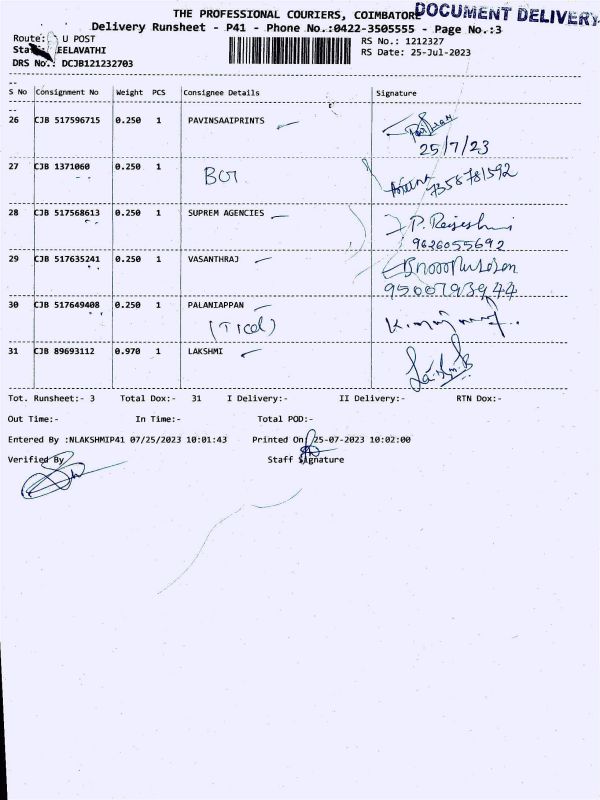 THE PROFESSIONAL COURIERS, COIMBATORE
DOCUMENT DELIVERY
Delivery Runsheet - P41 - Phone No.:0422-3505555 - Page No.:3
Route: U POST
RS No.: 1212327
EELAVATHI
RS Date: 25-Jul-2023
DRS No.: DCJB121232703
S No Consignment No Weight PCS Consignee Details Signature
26 CJB 517596715 0.250 1 PAVINSAAIPRINTS
25/7/23
27 CJB 1371060 0.250 1
7358781592
28 CJB 517568613 0.250 1 SUPREM AGENCIES
9626055692
29 CJB 517635241 0.250 1 VASANTHRAJ
30 CJB 517649408 0.250 1 PALANIAPPAN
31 CJB 89693112 0.970 1 LAKSHMI
Tot. Runsheet:- 3 Total Dox:- 31 I Delivery:- II Delivery:- RTN Dox:-
Out Time:- In Time:- Total POD:-
Entered By :NLAKSHMIP41 07/25/2023 10:01:43 Printed On: 25-07-2023 10:02:00
Verified By Staff Signature